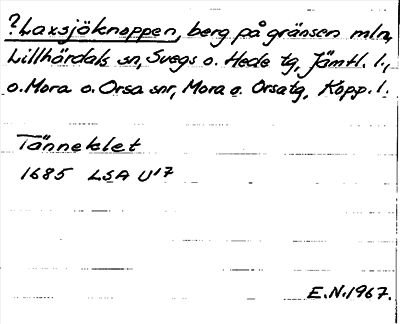 ?Laxsjöknoppen, berg på gränsen mln
Lillhärdals sn, Svegs o. Hede tg, Jämtl. l.,
o. Mora o. Orsa snr, Mora o. Orsa tg, Kopp. l.
Tänneklet
1685 LSA U17
E.N. 1967.